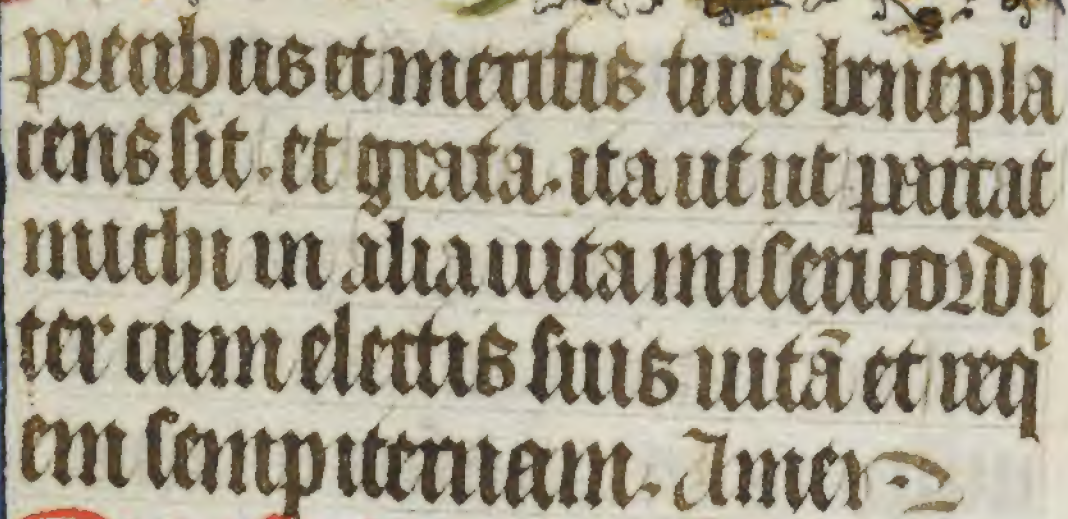 precibus et meritis tuis benepla
cens sit. et grata. ita ut ut parcat
michi in alia uita misericordi
ter cum electis suis uitā et req
em sempiternam. Amen